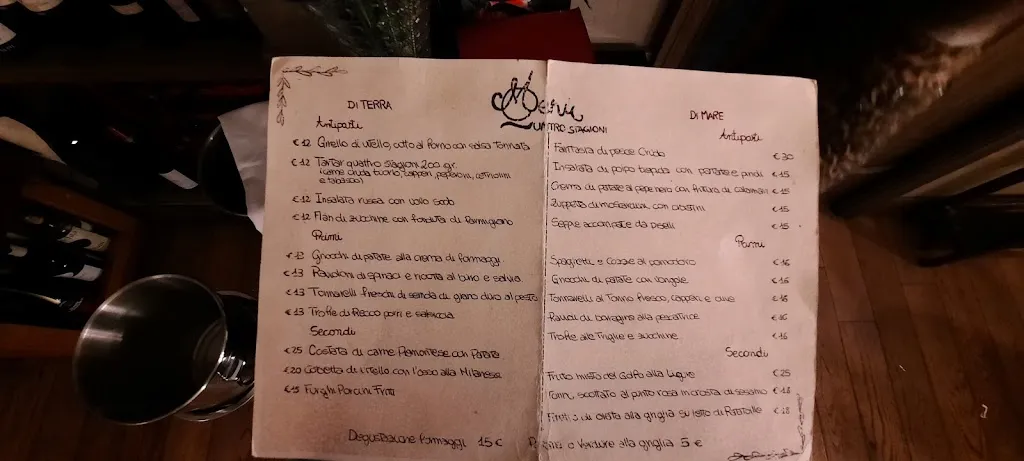 QUATTRO STAGIONI
DI TERRA
Antipasti
€ 12 Girello di vitello, cotto al forno con salsa Tonnata
€ 12 Tartar quattro stagioni 200 gr.
(carne cruda tuorlo, capperi, peperoni, cetriolini
e tabasco)
€ 12 Insalata russa con uovo sodo
€ 12 Flan di zucchine con fonduta di Parmigiano
Primi
€ 13 Gnocchi di patate alla crema di formaggi
€ 13 Ravioloni di spinaci e ricotta al burro e salvia
€ 13 Tonnarelli freschi di semola di grano duro al pesto
€ 13 Trofie di Recco porri e salsiccia
Secondi
€ 25 Costata di carne Piemontese con Patate
€ 20 Cotoletta di vitello con l'osso alla Milanese
€ 15 Funghi Porcini Fritti
Degustazione formaggi 15 €
DI MARE
Antipasti
Fantasia di pesce Crudo € 30
Insalata di polpo tiepida con patate e pinoli € 15
Crema di patate al pepe nero con frittura di calamari € 15
Zuppetta di moscardini con crostini € 15
Seppie accomodate da piselli € 15
Primi
Spaghetti e Cozze al pomodoro € 16
Gnocchi di patate con vongole € 16
Tonnarelli al Tonno fresco, capperi e olive € 16
Ravioli di borragine alla pescatrice € 16
Trofie alle Triglie e zucchine € 16
Secondi
Fritto misto del Golfo alla Ligure € 25
Tonno scottato al punto rosa in crosta di sesamo € 18
di orata alla griglia su letto di Ratatuille € 18
o Verdure alla griglia 5 €